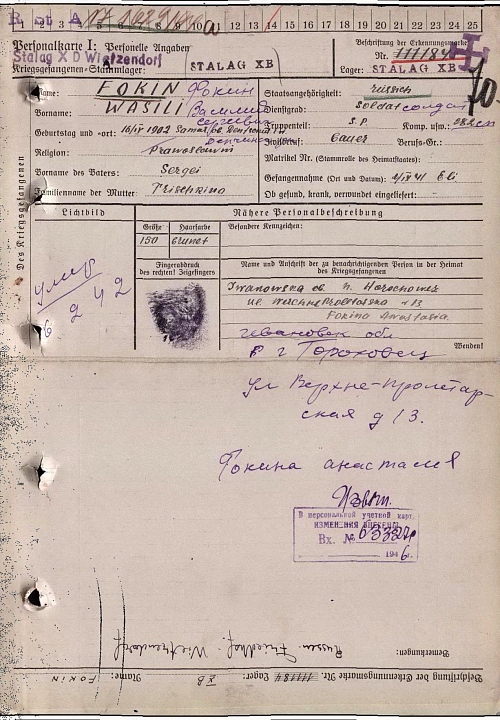 1 2 3 4 5 6 7 8 9 10 11 12 13 14 15 16 17 18 19 20 21 22 23 24 25
Personalkarte I: Personelle Angaben
Beschriftung der Erkennungsmarke
Stalag X D Wietzendorf
Nr. 111184
Kriegsgefangenen-Stammlager: STALAG XB
Lager: STALAG XB
Des Kriegsgefangenen
Name: FOKIN Фокин
Staatsangehörigkeit: russisch
Vorname: WASILI Василий Сергеевич
Dienstgrad: Soldat солдат
Truppenteil: S.P. Komp. usw.:
Geburtstag und -ort: 1902
Zivilberuf: Bauer Berufs-Gr.:
Religion: Prawoslawin
Matrikel Nr. (Stammrolle des Heimatstaates):
Vorname des Vaters: Sergei
Gefangennahme (Ort und Datum):
Familienname der Mutter:
Ob gesund, krank, verwundet eingeliefert:
Lichtbild
Nähere Personalbeschreibung
Größe Haarfarbe Besondere Kennzeichen:
150 brünet
Fingerabdruck des rechten! Zeigefingers
Name und Anschrift der zu benachrichtigenden Person in der Heimat des Kriegsgefangenen
умер
6 2 42
Iwanowska ob.
Fokina Anastasia
обл
Wenden!
в г Гороховец
ул Верхне-Пролетар-
ская д 13.
Фокина анастасия
В персональной учетной карт.
ИЗМЕНЕНИЯ ВНЕСЕНЫ
Вх. №
194 6.
Bemerkungen:
Russen-Friedhof Wietzendorf
Beschriftung der Erkennungsmarke Nr. 111184 Lager: XB Name: FOKIN